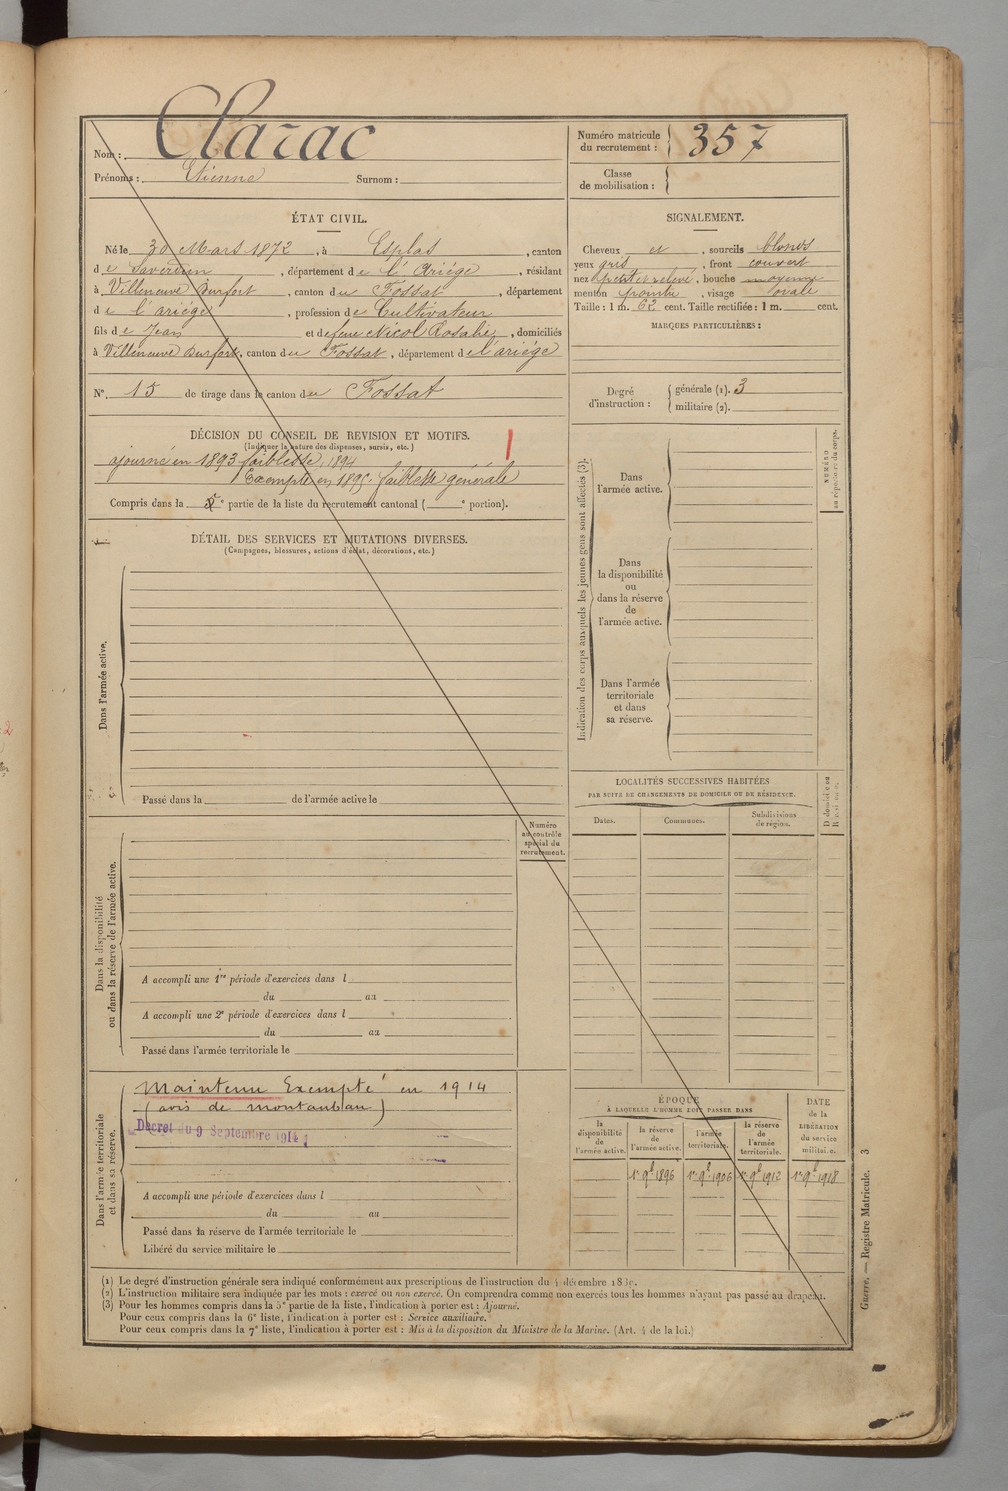 Nom : Clarac
Prénoms : Etienne Surnom :
Numéro matricule du recrutement : 357
Classe de mobilisation :
ÉTAT CIVIL.
Né le 30 Mars 1872, à Esplas, canton
de Saverdun, département de l'Ariége, résidant
à Villeneuve Durfort, canton du Fossat, département
de l'ariége, profession de Cultivateur
fils de Jean et de feue Nicol Rosalie, domiciliés
à Villeneuve Durfort, canton du Fossat, département de l'ariége
N° 15 de tirage dans le canton du Fossat
DÉCISION DU CONSEIL DE REVISION ET MOTIFS.
(Indiquer la nature des dispenses, sursis, etc.)
ajourné en 1893 faiblesse, 1894
Exempté en 1895. faiblesse générale
Compris dans la 5e partie de la liste du recrutement cantonal ( e portion).
SIGNALEMENT.
Cheveux et, sourcils blonds
yeux gris, front couvert
nez petit et relevé, bouche moyenne
menton pointu, visage ovale
Taille : 1 m. 62 cent. Taille rectifiée : 1 m. cent.
MARQUES PARTICULIÈRES :
Degré d'instruction :
générale (1). 3
militaire (2).
DÉTAIL DES SERVICES ET MUTATIONS DIVERSES.
(Campagnes, blessures, actions d'éclat, décorations, etc.)
Dans l'armée active.
Passé dans la de l'armée active le
Indication des corps auxquels les jeunes gens sont affectés (3).
NUMÉRO au répertoire du corps.
Dans
l'armée active.
Dans
la disponibilité
ou
dans la réserve
de
l'armée active.
Dans l'armée
territoriale
et dans
sa réserve.
LOCALITÉS SUCCESSIVES HABITÉES
PAR SUITE DE CHANGEMENTS DE DOMICILE OU DE RÉSIDENCE.
Dates. Communes. Subdivisions de région.
Dans la disponibilité
ou dans la réserve de l'armée active.
Numéro
au contrôle
spécial du
recrutement.
A accompli une 1re période d'exercices dans l
du au
A accompli une 2e période d'exercices dans l
du au
Passé dans l'armée territoriale le
Dans l'armée territoriale
et dans sa réserve.
Maintenu Exempté en 1914
(avis de montauban)
Décret du 9 Septembre 1914
A accompli une période d'exercices dans l
du au
Passé dans la réserve de l'armée territoriale le
Libéré du service militaire le
ÉPOQUE
À LAQUELLE L'HOMME DOIT PASSER DANS
la disponibilité de l'armée active.
la réserve de l'armée active.
l'armée territoriale.
la réserve de l'armée territoriale.
DATE de la LIBÉRATION du service militaire.
1er 9bre 1896 1er 9bre 1906 1er 9bre 1912 1er 9bre 1918
(1) Le degré d'instruction générale sera indiqué conformément aux prescriptions de l'instruction du 4 décembre
(2) L'instruction militaire sera indiquée par les mots : exercé ou non exercé. On comprendra comme non exercés tous les hommes n'ayant pas passé au drapeau.
(3) Pour les hommes compris dans la 5e partie de la liste, l'indication à porter est : Ajourné.
Pour ceux compris dans la 6e liste, l'indication à porter est : Service auxiliaire.
Pour ceux compris dans la 7e liste, l'indication à porter est : Mis à la disposition du Ministre de la Marine. (Art. 4 de la loi.)
Guerre. — Registre Matricule. 3